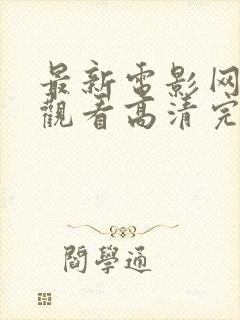 最新電影网
觀看高清完
閻學通